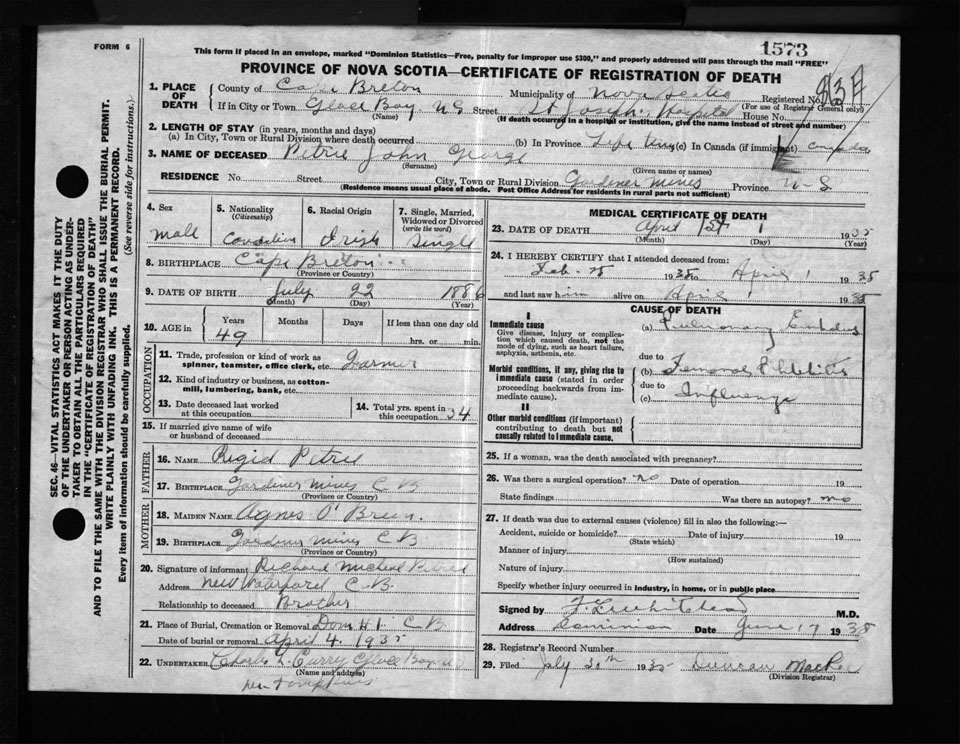 FORM 6
1573
This form if placed in an envelope, marked "Dominion Statistics—Free, penalty for improper use $300," and properly addressed will pass through the mail "FREE"
PROVINCE OF NOVA SCOTIA—CERTIFICATE OF REGISTRATION OF DEATH
1. PLACE OF DEATH
County of Cape Breton Municipality of Nova Scotia
Registered No. (For use of Registrar General only)
If in City or Town Glace Bay N S Street St Joseph Hospital House No.
(Name) (If death occurred in a hospital or institution, give the name instead of street and number)
2. LENGTH OF STAY (in years, months and days)
(a) In City, Town or Rural Division where death occurred (b) In Province Life time (c) In Canada (if immigrant) Canada
3. NAME OF DECEASED Petrie John George
(Surname) (Given name or names)
RESIDENCE No. Street City, Town or Rural Division Gardiner Mines Province N-S.
(Residence means usual place of abode. Post Office Address for residents in rural parts not sufficient)
4. Sex
Male
5. Nationality
(Citizenship)
Canadian
6. Racial Origin
Irish
7. Single, Married, Widowed or Divorced
(write the word)
Single
8. BIRTHPLACE Cape Breton
(Province or Country)
9. DATE OF BIRTH July 22 1886
(Month) (Day) (Year)
10. AGE in
Years Months Days If less than one day old
49 hrs. or min.
OCCUPATION
11. Trade, profession or kind of work as spinner, teamster, office clerk, etc. Farmer
12. Kind of industry or business, as cotton-mill, lumbering, bank, etc.
13. Date deceased last worked at this occupation
14. Total yrs. spent in this occupation 34
15. If married give name of wife or husband of deceased
FATHER
16. NAME Petrie
17. BIRTHPLACE Gardiner Mines C B
(Province or Country)
MOTHER
18. MAIDEN NAME Agnes O'Brien.
19. BIRTHPLACE Gardiner Mines C B
(Province or Country)
20. Signature of informant Richard Micheal Petrie
Address New Waterford C.B.
Relationship to deceased Brother
21. Place of Burial, Cremation or Removal Dom #1 C B
Date of burial or removal April 4. 1935
22. UNDERTAKER Charles L. Curry Glace Bay
(Name and address)
MEDICAL CERTIFICATE OF DEATH
23. DATE OF DEATH April 1st 1 1935
(Month) (Day) (Year)
24. I HEREBY CERTIFY that I attended deceased from:
Feb. 1935 to April 1 1935
and last saw him alive on April 1 1935
CAUSE OF DEATH
I
Immediate cause
Give disease, injury or complication which caused death, not the mode of dying, such as heart failure, asphyxia, asthenia, etc.
(a) Pulmonary Embolus
due to
Morbid conditions, if any, giving rise to immediate cause (stated in order proceeding backwards from immediate cause).
(b) Femoral Phlebitis
due to
(c) Influenza
II
Other morbid conditions (if important) contributing to death but not causally related to immediate cause.
25. If a woman, was the death associated with pregnancy?
26. Was there a surgical operation? no Date of operation 19
State findings Was there an autopsy? no
27. If death was due to external causes (violence) fill in also the following:—
Accident, suicide or homicide? Date of injury 19
(State which)
Manner of injury
(How sustained)
Nature of injury
Specify whether injury occurred in industry, in home, or in public place
Signed by M.D.
Address Dominion Date June 17 1935
28. Registrar's Record Number
29. Filed July 20th 1935 Duncan MacRae
(Division Registrar)
SEC. 46—VITAL STATISTICS ACT MAKES IT THE DUTY
OF THE UNDERTAKER OR PERSON ACTING AS UNDER-
TAKER TO OBTAIN ALL THE PARTICULARS REQUIRED
IN THE "CERTIFICATE OF REGISTRATION OF DEATH"
AND TO FILE THE SAME WITH THE DIVISION REGISTRAR WHO SHALL ISSUE THE BURIAL PERMIT.
WRITE PLAINLY WITH UNFADING INK. THIS IS A PERMANENT RECORD.
Every item of information should be carefully supplied. (See reverse side for instructions.)